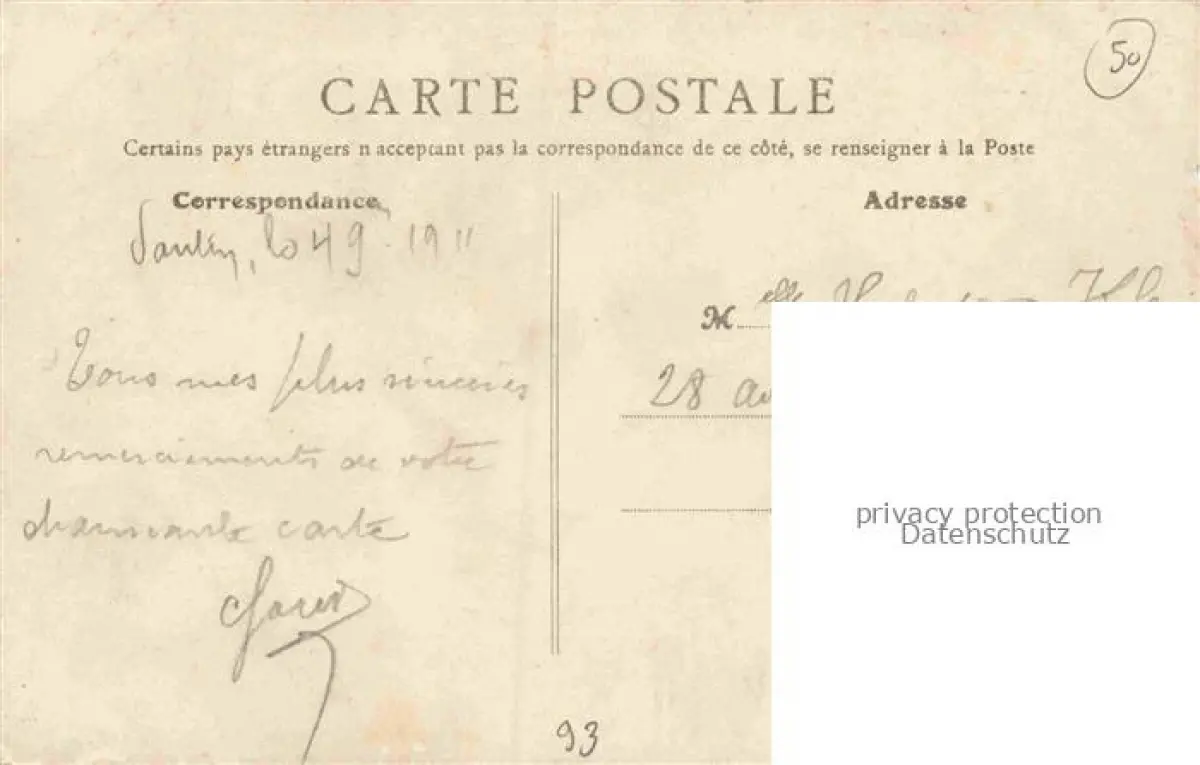 50
CARTE POSTALE
Certains pays étrangers n acceptant pas la correspondance de ce côté, se renseigner à la Poste
Correspondance
Adresse
le 4 9 1911
M elle
28 av
Tous mes plus sincères
remerciements de votre
charmante carte
93
privacy protection
Datenschutz